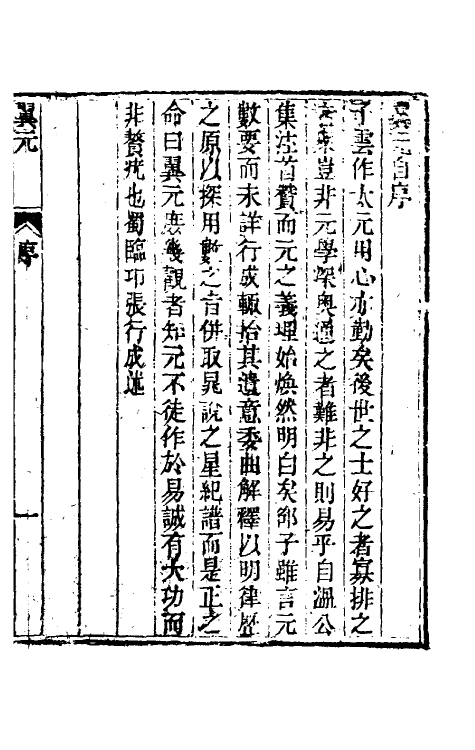 翼元自序
子雲作太元用心亦勤矣後世之士好之者寡排之
者衆豈非元學深奥通之者難非之則易乎自溫公
集注首贊而元之義理始煥然明白矣邵子雖言元
數要而未詳行成輒拾其遺意委曲解釋以明律歷
之原以探用數之旨併取晁說之星紀譜而是正之
命曰翼元庶幾觀者知元不徒作於易誠有大功而
非贅疣也蜀臨邛張行成述
翼元
序
一